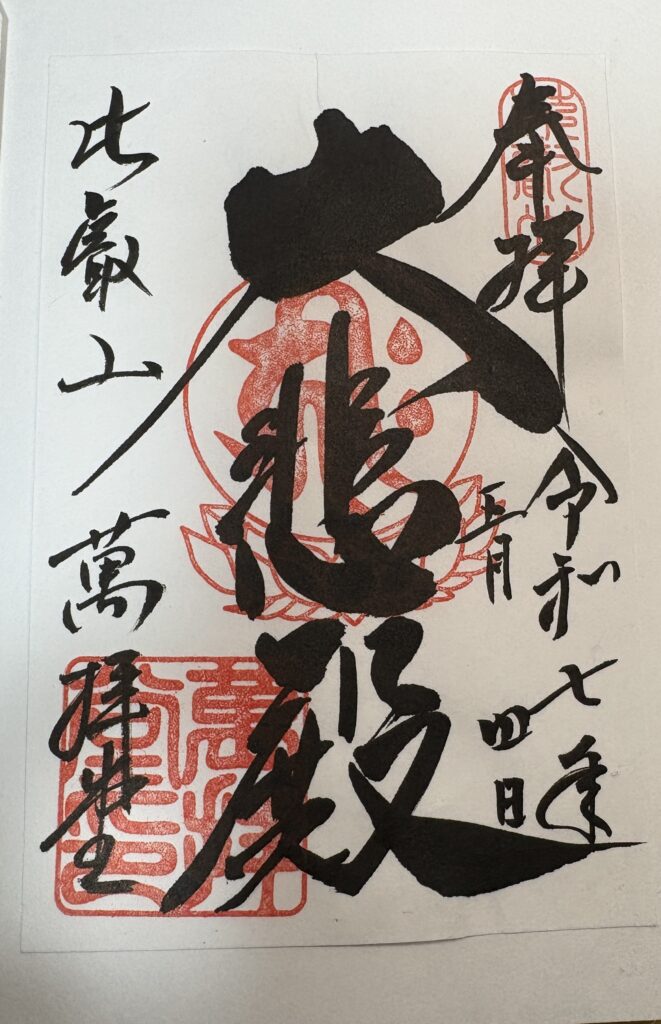 奉拝 令和七年
月四日
大悲殿
比叡山 萬拝堂